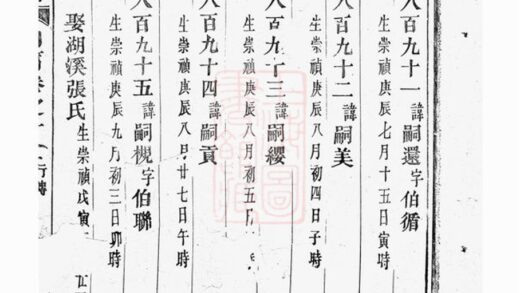 八百九十一諱嗣還字伯循
生崇禎庚辰七月十五日寅時
八百九十二諱嗣美
生崇禎庚辰八月初四日子時
八百九十三諱嗣纓
生崇禎庚辰八月初五日
八百九十四諱嗣貢
生崇禎庚辰八月廿七日午時
八百九十五諱嗣梘字伯聯
生崇禎庚辰九月初三日卯時
娶湖溪張氏生崇禎戊寅
行傳